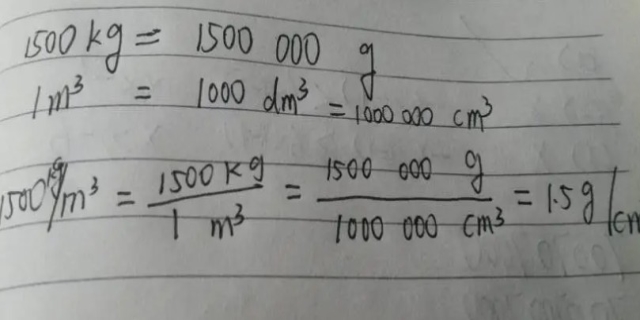 1500 kg = 1500 000 g
1 m³ = 1000 dm³ = 1000 000 cm³
1500 kg/m³ = 1500 kg / 1 m³ = 1500 000 g / 1000 000 cm³ = 1.5 g/cm